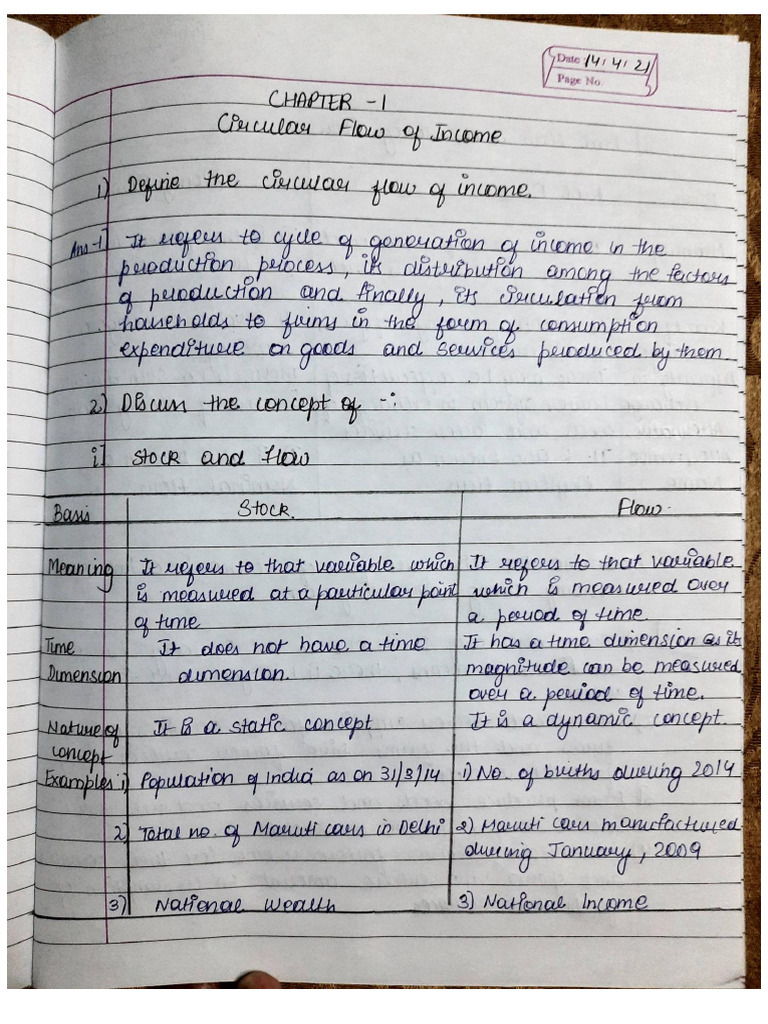 Date 14.4.21
Page No.
CHAPTER -1
Circular Flow of Income
1) Define the circular flow of income.
Ans-1] It refers to cycle of generation of income in the
production process, its distribution among the factors
of production and finally, its circulation from
households to firms in the form of consumption
expenditure on goods and services produced by them.
2) Discuss the concept of -:
i] Stock and Flow
Basis Stock. Flow.
Meaning It refers to that variable which It refers to that variable
is measured at a particular point which is measured over
of time a period of time.
Time It does not have a time It has a time dimension as its
Dimension dimension. magnitude can be measured
over a period of time.
Nature of It is a static concept It is a dynamic concept.
concept
Examples 1) Population of India as on 31/3/14 1) No. of births during 2014
2) Total no. of Maruti cars in Delhi 2) Maruti cars manufactured
during January, 2009
3) National Wealth 3) National Income